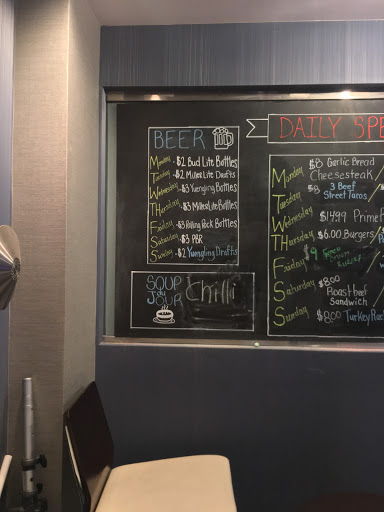 BEER
Monday - $2 Bud Lite Bottles
Tuesday - $2 Miller Lite Drafts
Wednesday - $3 Yuengling Bottles
Thursday - $3 Miller Lite Bottles
Friday - $3 Rolling Rock Bottles
Saturday - $3 PBR
Sunday - $2 Yuengling Drafts
SOUP du JOUR
Chilli
DAILY SPE
Monday $8 Garlic Bread
Cheesesteak
Tuesday $8 3 Beef
Street Tacos
Wednesday $14.99 Prime
Thursday $6.00 Burgers
Friday $9
Saturday $8.00
Roast beef
Sandwich
Sunday $8.00 Turkey